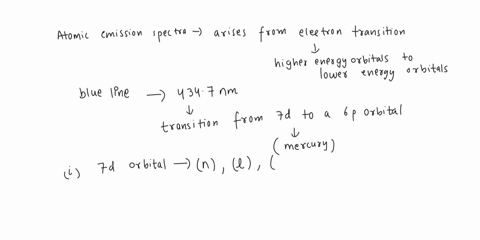 Atomic emission spectra → arises from electron transition
↓
higher energy orbitals to
lower energy orbitals
blue line → 434.7 nm
↓
transition from 7d to a 6p orbital
↓
(mercury)
(i) 7d orbital → (n), (l), (